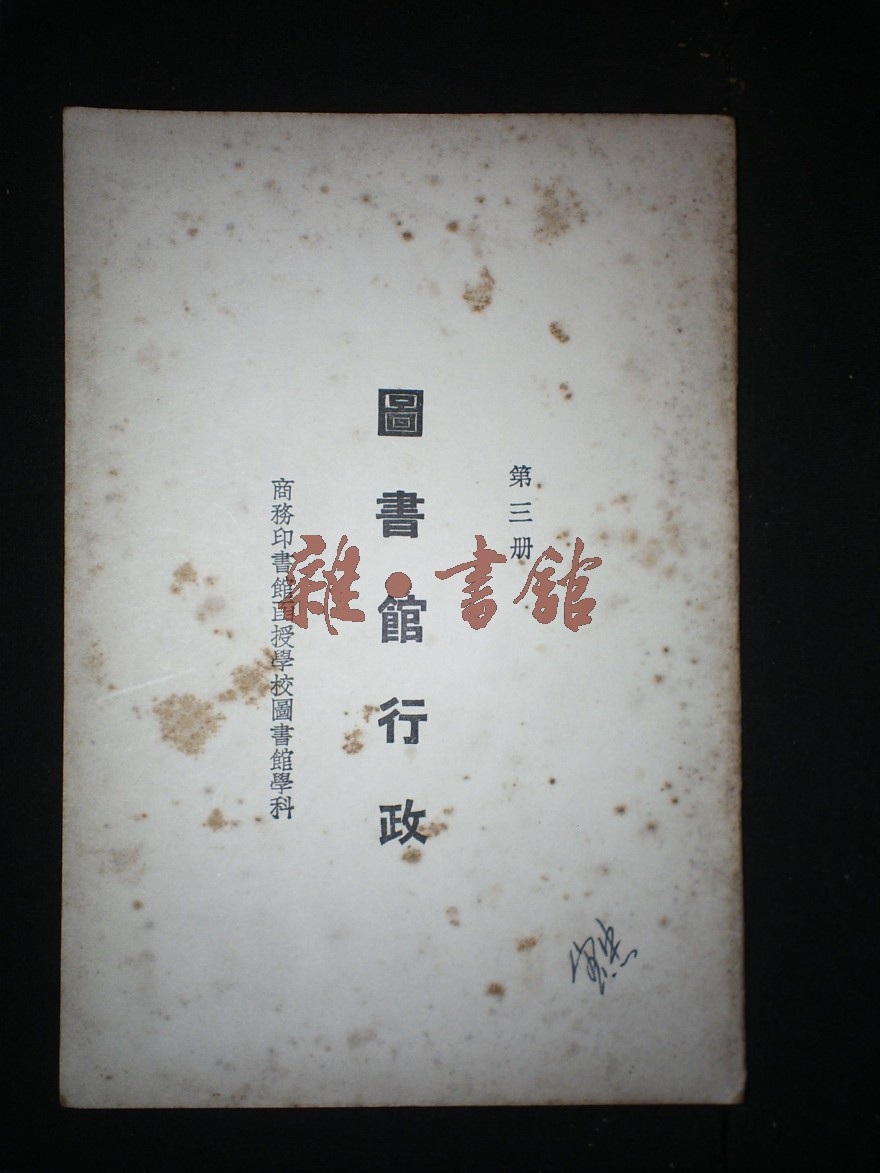 第三册
圖書館行政
商務印書館直授學校圖書館學科
雜·書館